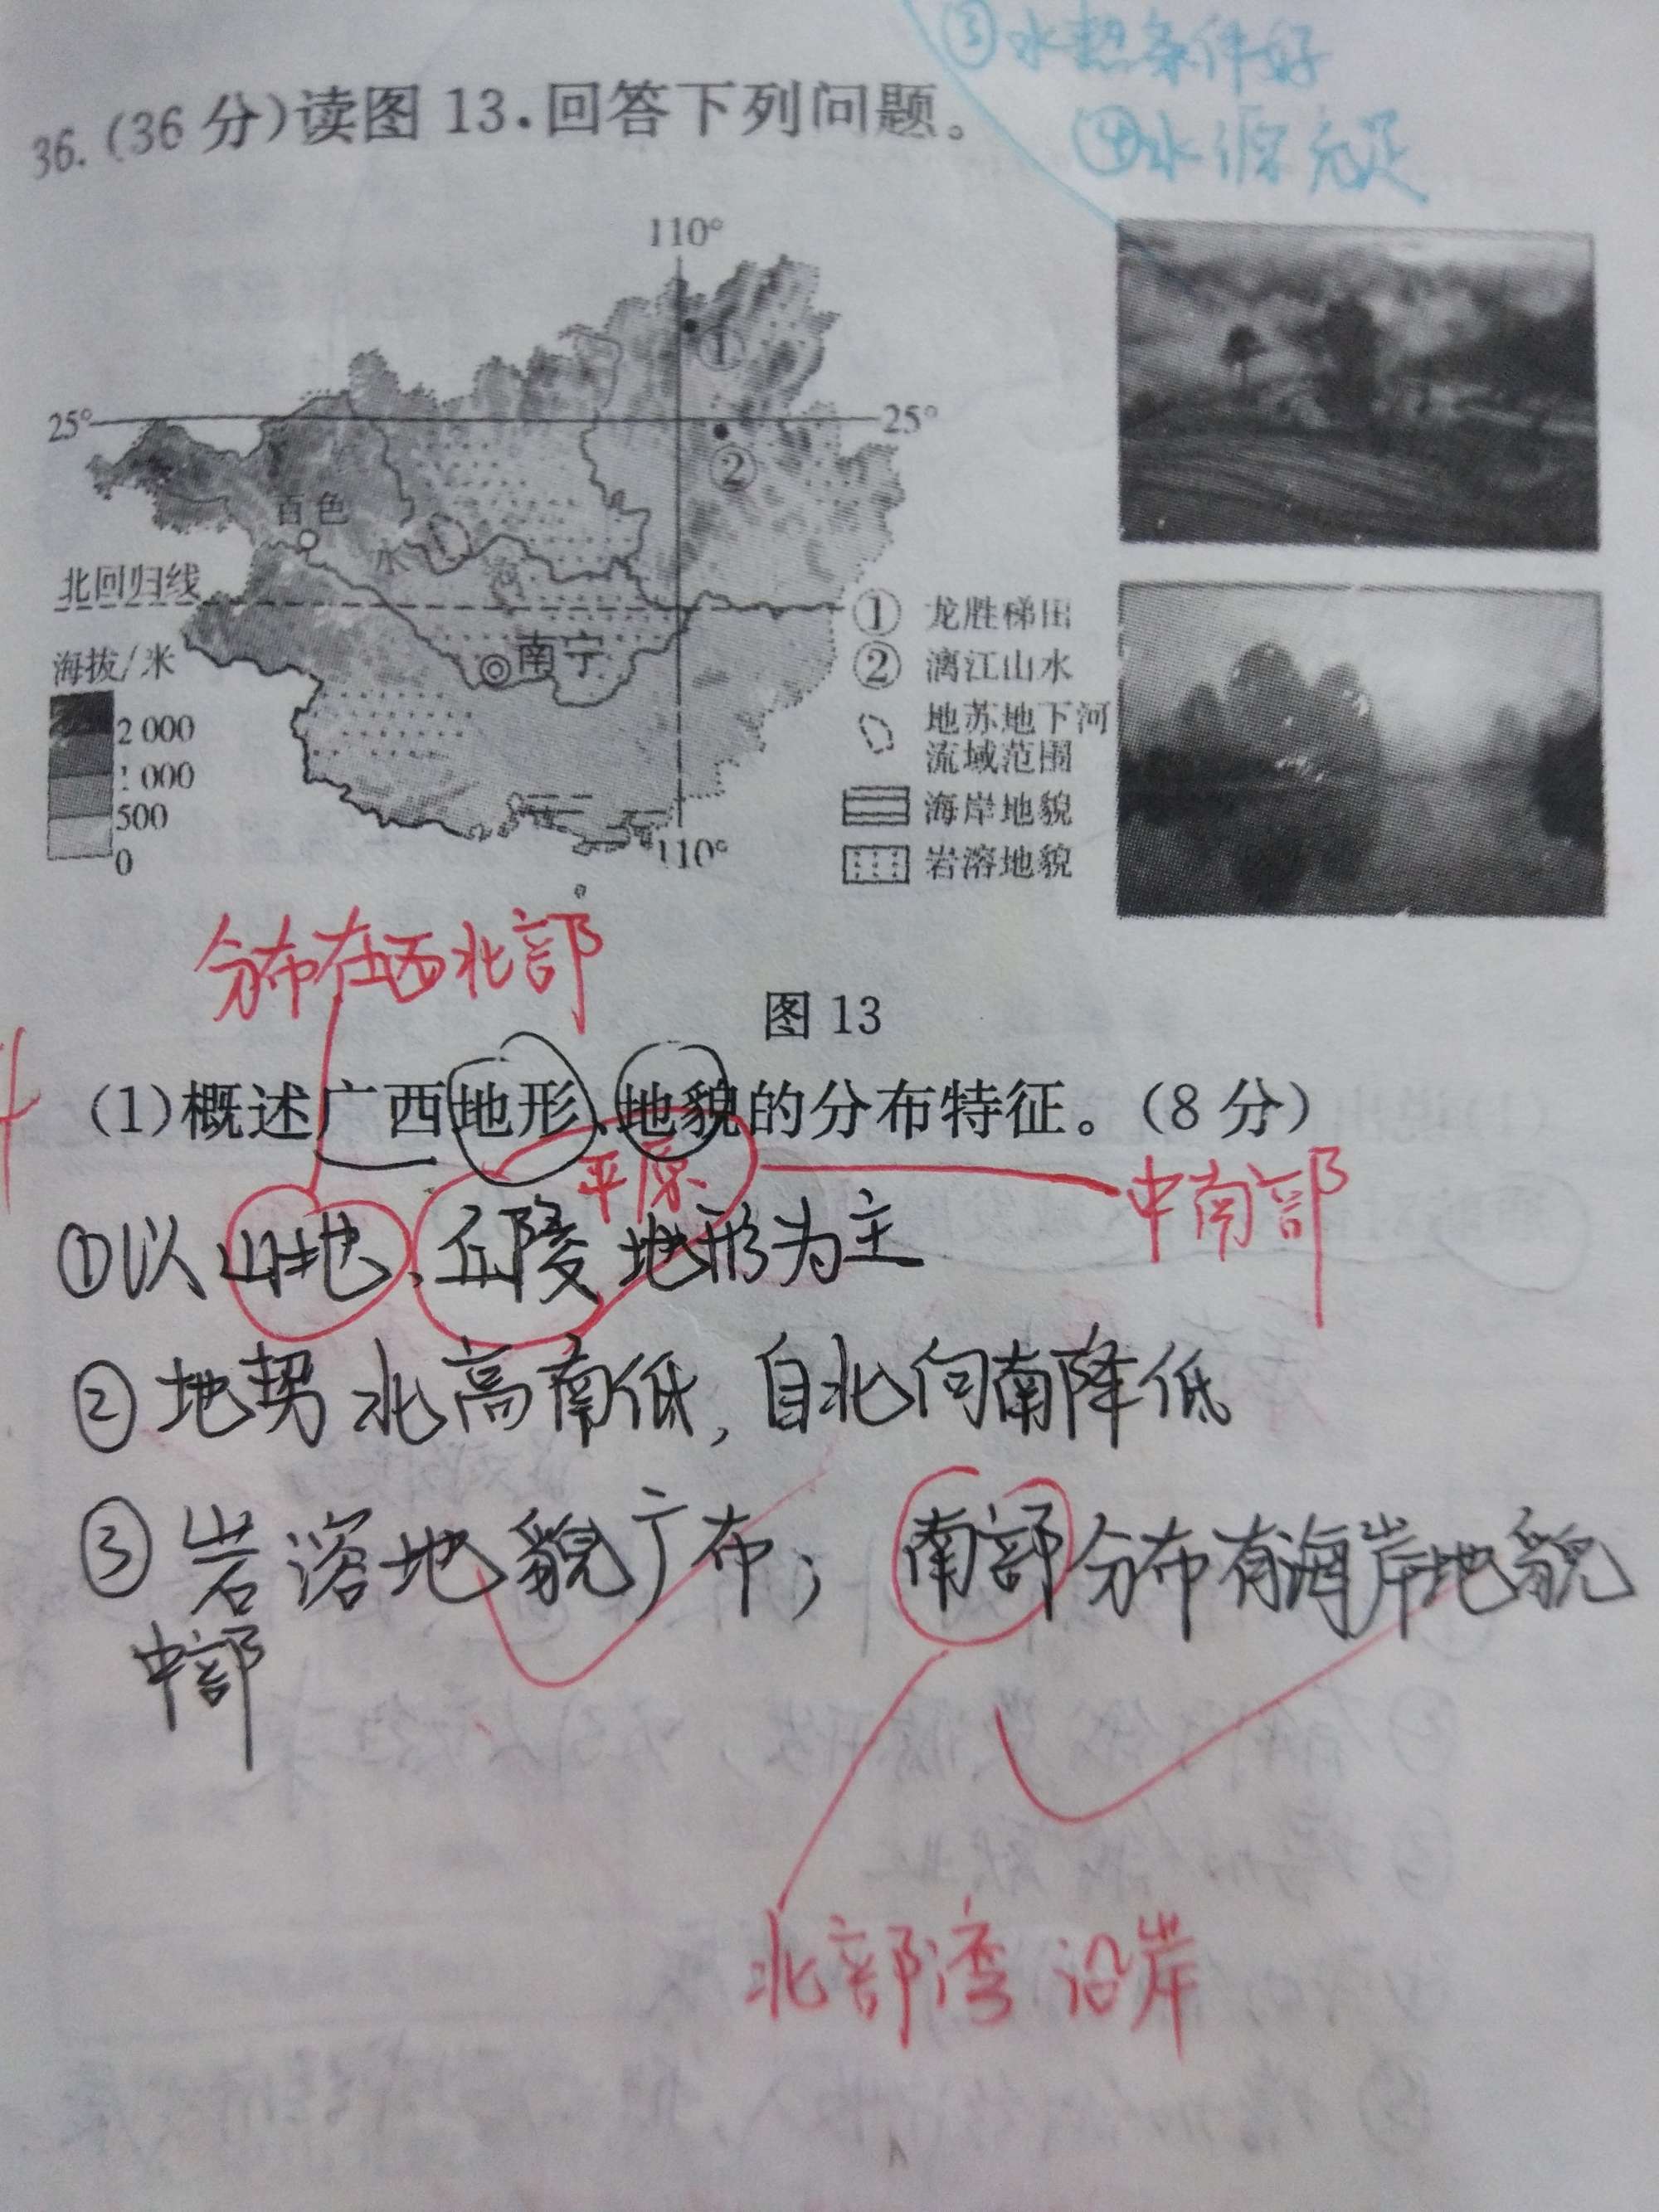 ③水热条件好
④水源充足
36.(36分)读图13.回答下列问题。
110°
①
25°
25°
②
百色
水
河
北回归线
南宁
海拔/米
2 000
1 000
500
0
110°
① 龙胜梯田
② 漓江山水
地苏地下河
流域范围
海岸地貌
岩溶地貌
分布在西北部
图 13
(1)概述广西地形、地貌的分布特征。(8分)
平原
中南部
①以山地、丘陵地形为主
②地势北高南低,自北向南降低
③岩溶地貌广布; 南部分布有海岸地貌
中部
北部湾沿岸